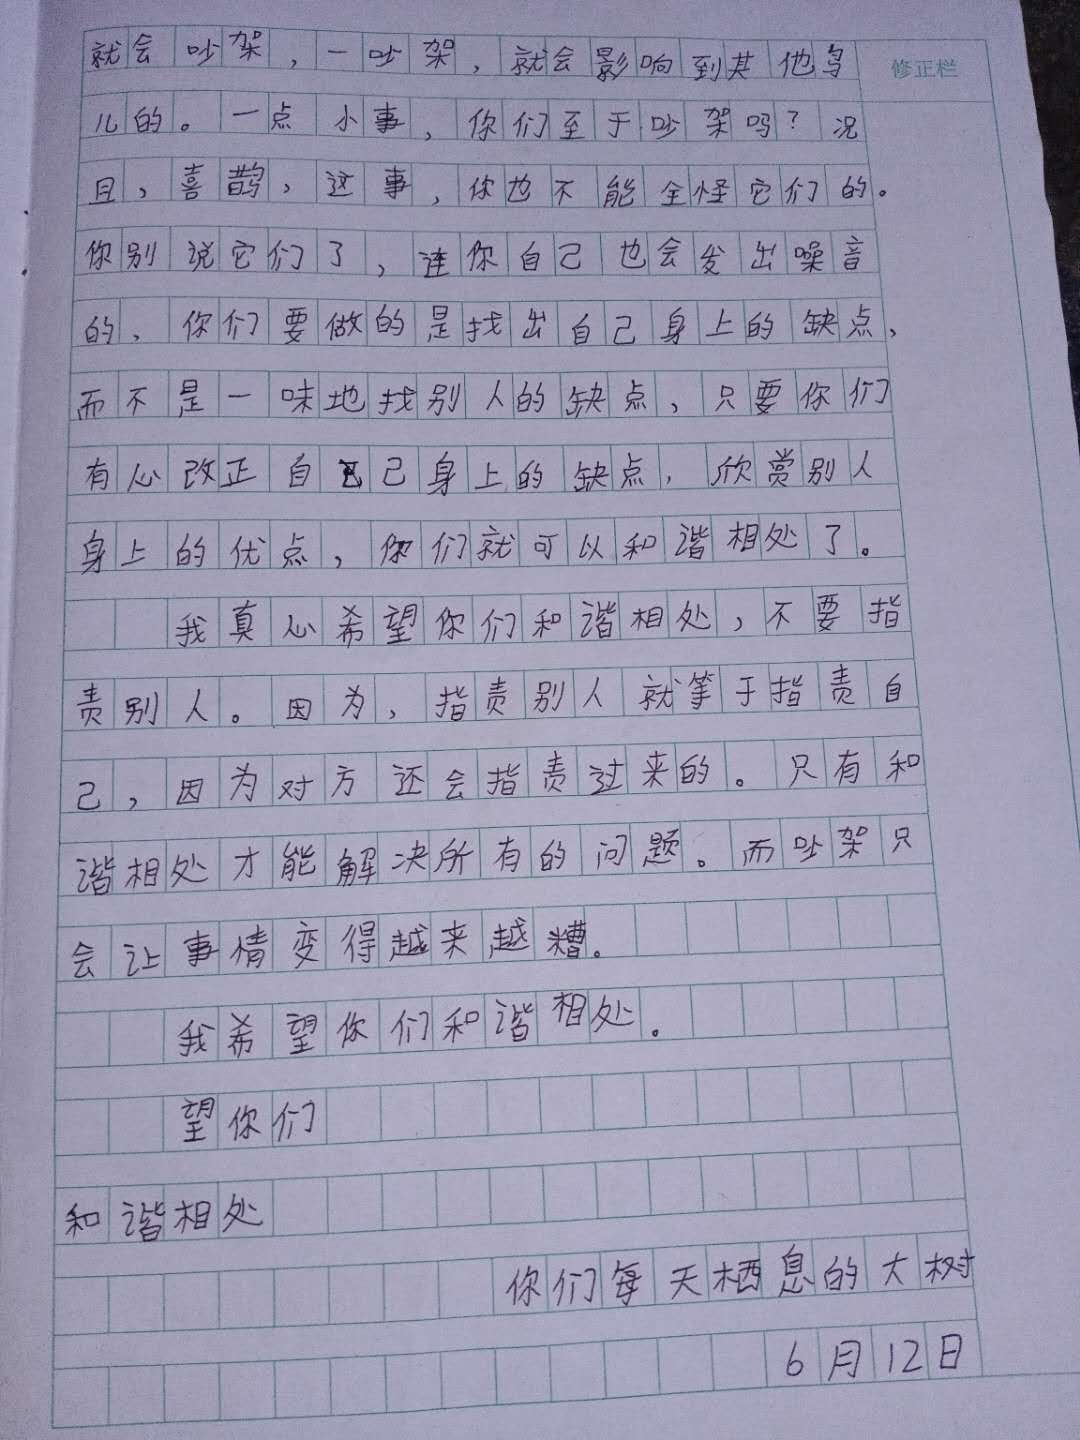 就会吵架，一吵架，就会影响到其他鸟
修正栏
儿的。一点小事，你们至于吵架吗？况
且，喜鹊，这事，你也不能全怪它们的。
你别说它们了，连你自己也会发出噪音
的、你们要做的是找出自己身上的缺点，
而不是一味地找别人的缺点，只要你们
有心改正自己身上的缺点，欣赏别人
身上的优点，你们就可以和谐相处了。
我真心希望你们和谐相处，不要指
责别人。因为，指责别人就等于指责自
己，因为对方还会指责过来的。只有和
谐相处才能解决所有的问题。而吵架只
会让事情变得越来越糟。
我希望你们和谐相处。
望你们
和谐相处
你们每天栖息的大树
6月12日